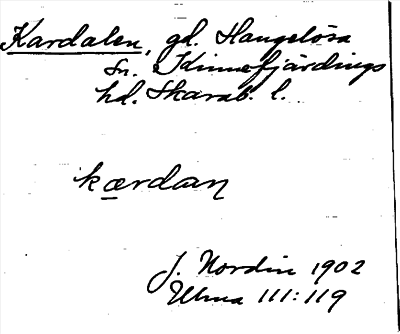 Kardalen, gd. Hangelösa
sn. Kinnefjärdings
hd. Skarab. l.
kærdan
J. Nordin 1902
Ulma 111:119